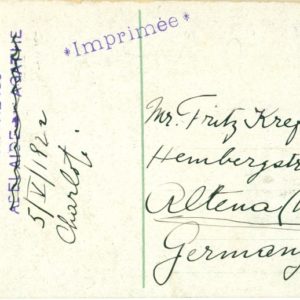 *Imprimée*
ADELAIDE
5/VI/1922
Charlot.
Mr. Fritz Kref
Hembergstr
Altena (
Germany